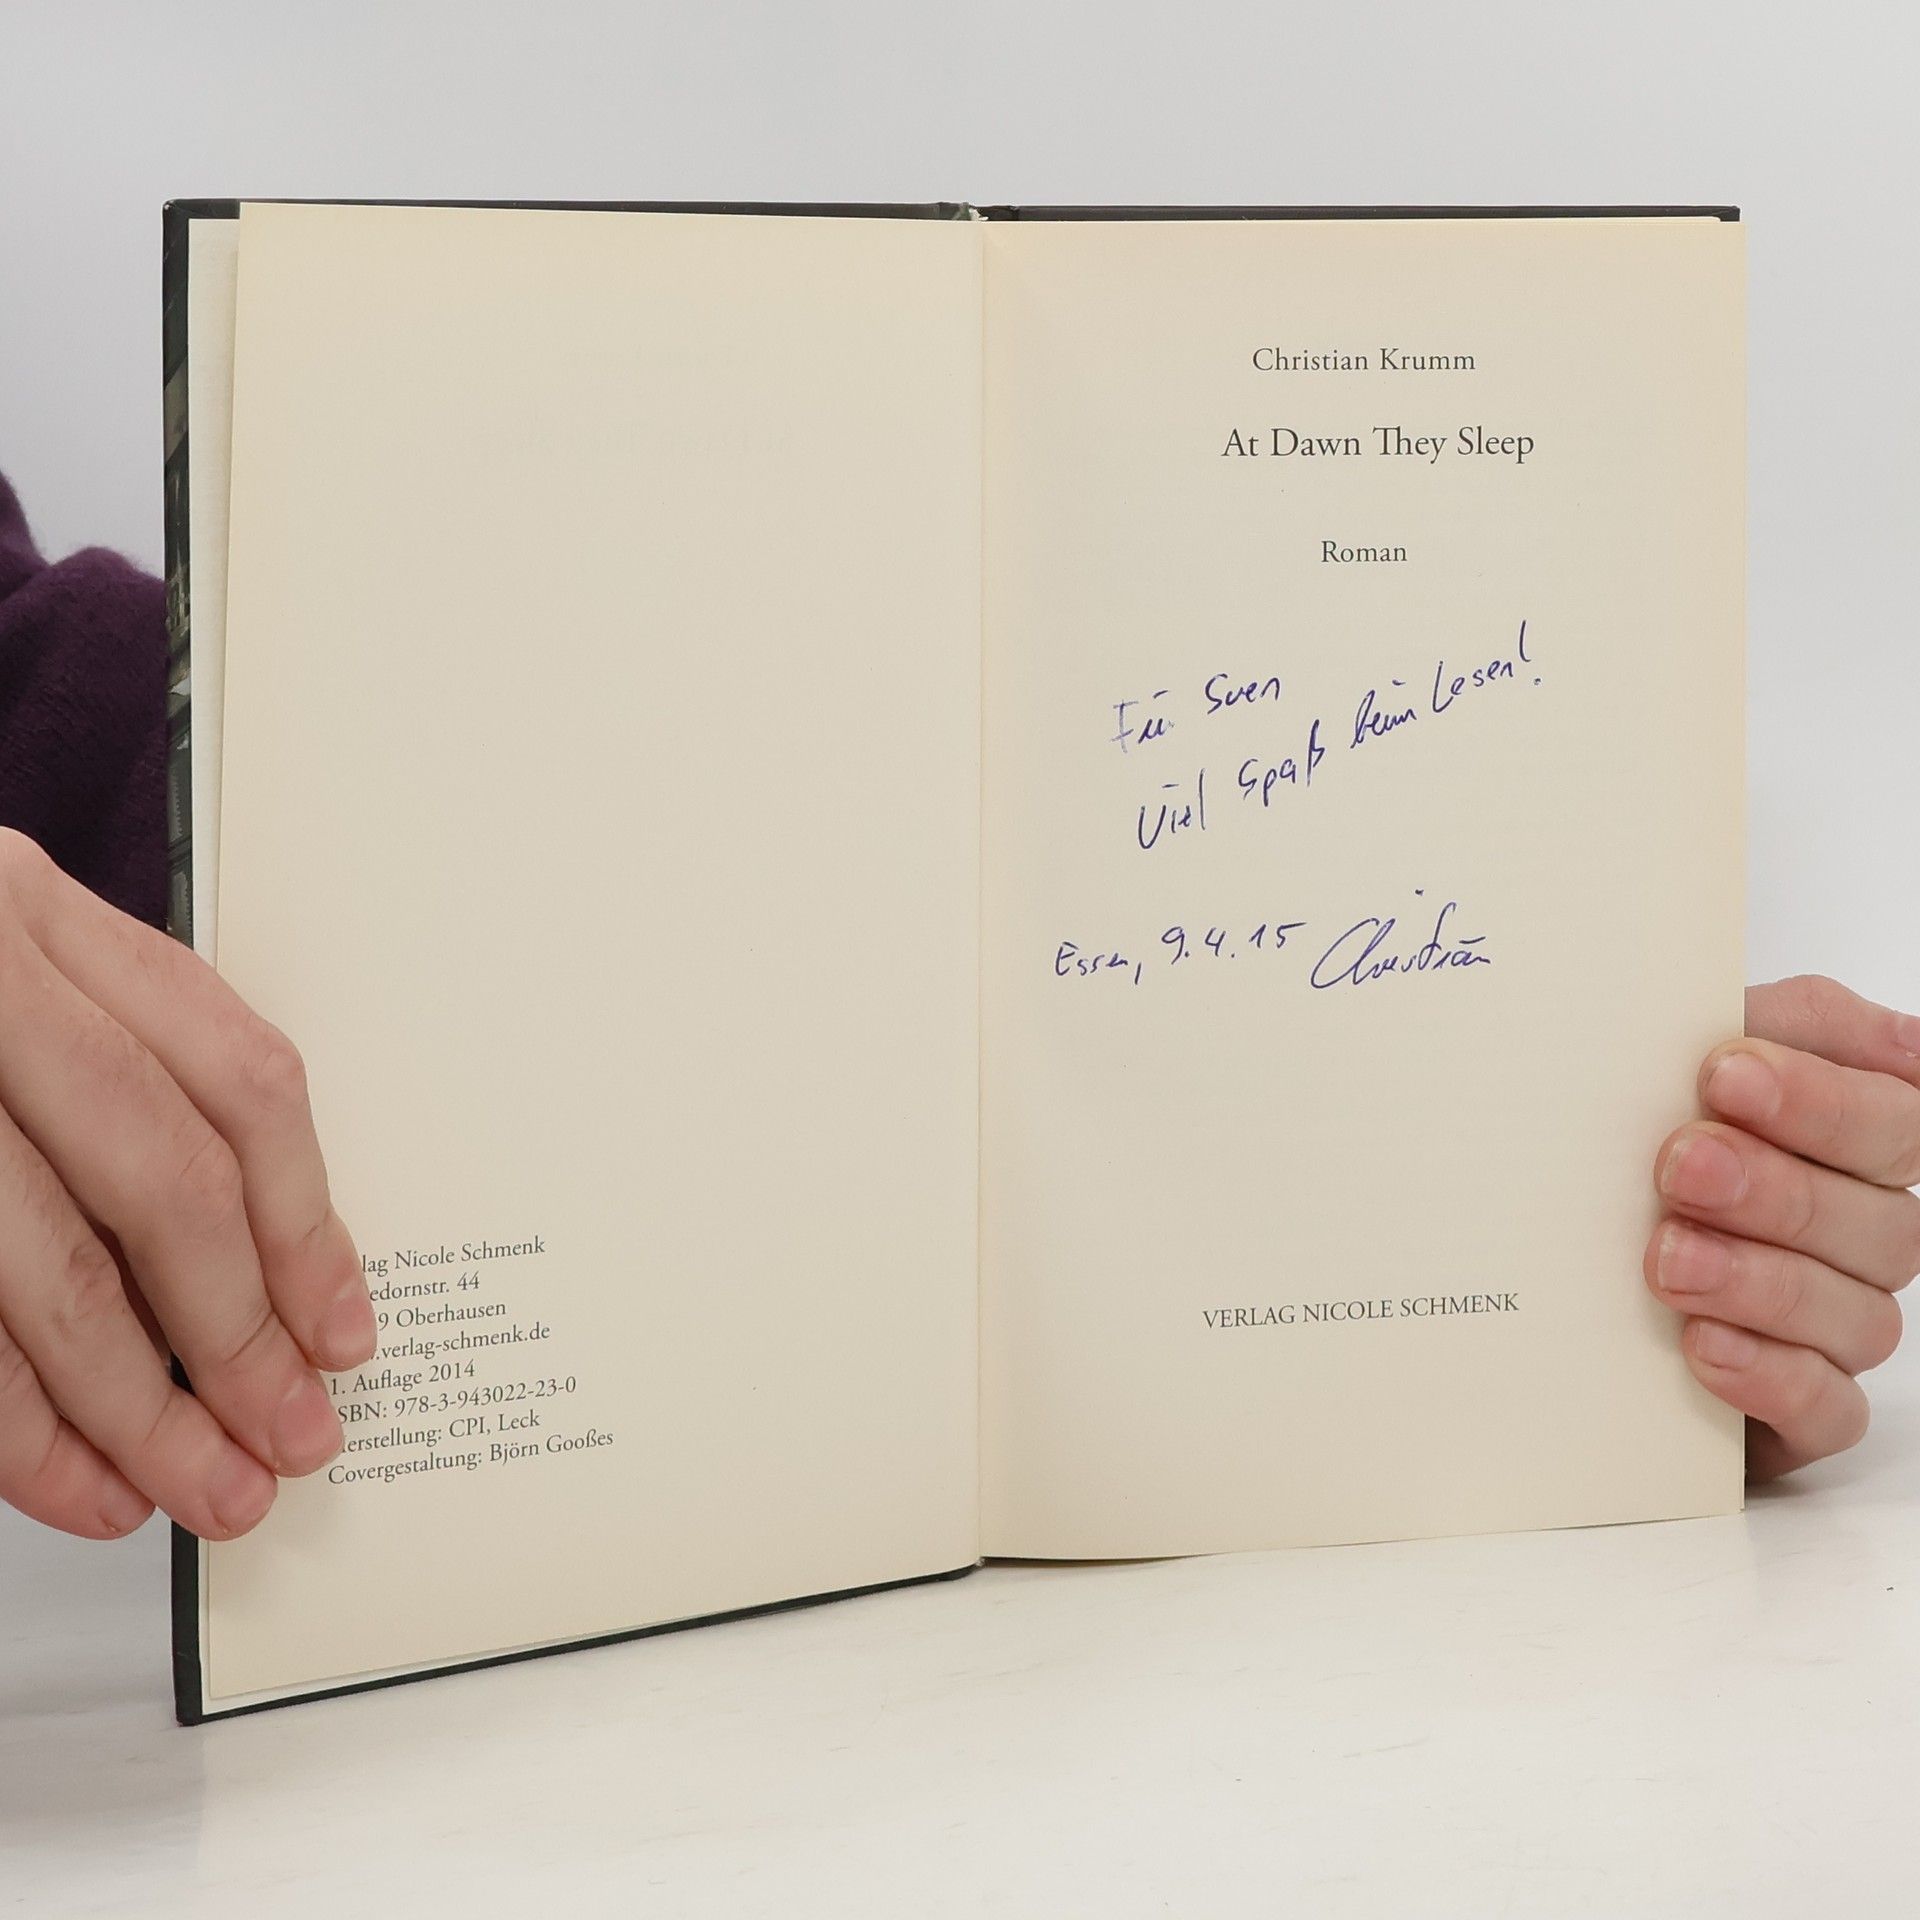 lag Nicole Schmenk
edornstr. 44
9 Oberhausen
.verlag-schmenk.de
1. Auflage 2014
SBN: 978-3-943022-23-0
erstellung: CPI, Leck
Covergestaltung: Björn Gooßes
Christian Krumm
At Dawn They Sleep
Roman
Für Sven
Viel Spaß beim Lesen!
Essen, 9.4.15 Christian
VERLAG NICOLE SCHMENK